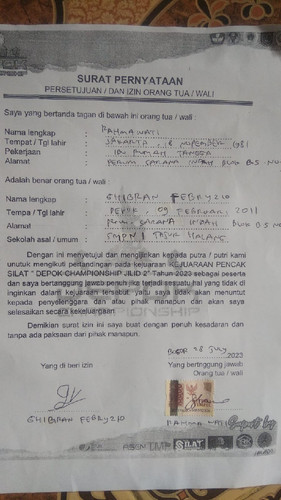 SURAT PERNYATAAN
PERSETUJUAN / DAN IZIN ORANG TUA / WALI
Saya yang bertanda tagan di bawah ini orang tua / wali :
Nama lengkap : RAHMAWATI
Tempat / Tgl lahir : JAKARTA, 8 NOPEMBER 1981
Pekerjaan : IBU RUMAH TANGGA
Alamat : PERUM SARANA INDAH BLOK B5
Adalah benar orang tua / wali dari :
Nama lengkap : GHIBRAN FEBRYZIO
Tempa / Tgl lahir : DEPOK, 09 FEBRUARI 2011
Alamat : SARANA INDAH BLOK B5
Sekolah asal / umum : SMPN 1 TAJUR HALANG
Dengan ini menyetujui dan mengijinkan kepada putra / putri kami
untuk mengikuti pertandingan pada kejuaraan KEJUARAAN PENCAK
SILAT " DEPOK CHAMPIONSHIP JILID 2" Tahun 2023 sebagai peserta
dan saya bertanggung jawab penuh jika terjadi sesuatu hal yang tidak di
inginkan dalam kejuaraan tersebut, yaitu saya tidak akan menuntut
kepada penyelenggara dan atau pihak manapun dan akan saya
selesaikan secara kekeluargaan
CHAMPIONSHIP
Demikian surat izin ini saya buat dengan penuh kesadaran dan
tanpa ada paksaan dari pihak manapun.
28 July
2023
Yang di beri izin
Yang bertnggung jawab
Orang tua / wali
GHIBRAN FEBRYZIO
RAHMAWATI
Support by
SILAT